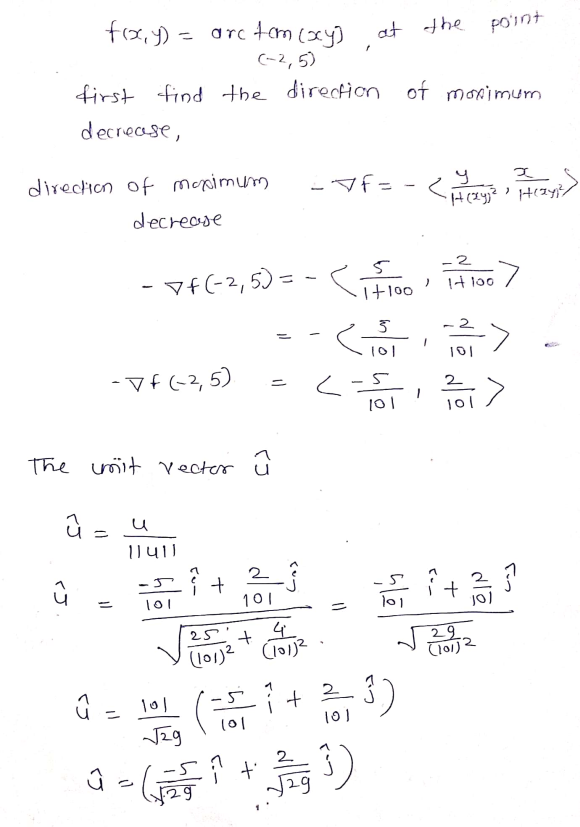 f(x,y) = arc tan (xy), at the point
(-2, 5)
first find the direction of maximum
decrease,
direction of maximum - ∇f = - < y/(1+(xy)²) , x/(1+(xy)²) >
decrease
- ∇f(-2, 5) = - < 5/(1+100) , -2/(1+100) >
= - < 5/101 , -2/101 >
- ∇f (-2, 5) = < -5/101 , 2/101 >
The unit vector û
û = u/||u||
û = (-5/101 î + 2/101 ĵ)/√(25/(101)² + 4/(101)²) = (-5/101 î + 2/101 ĵ)/√(29/(101)²)
û = 101/√29 (-5/101 î + 2/101 ĵ)
û = (-5/√29 î + 2/√29 ĵ)